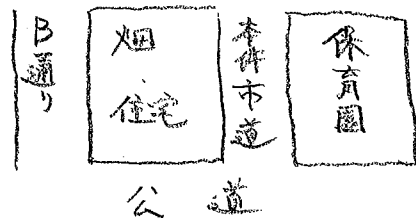 B通り
畑
住宅
本件市道
保育園
公道